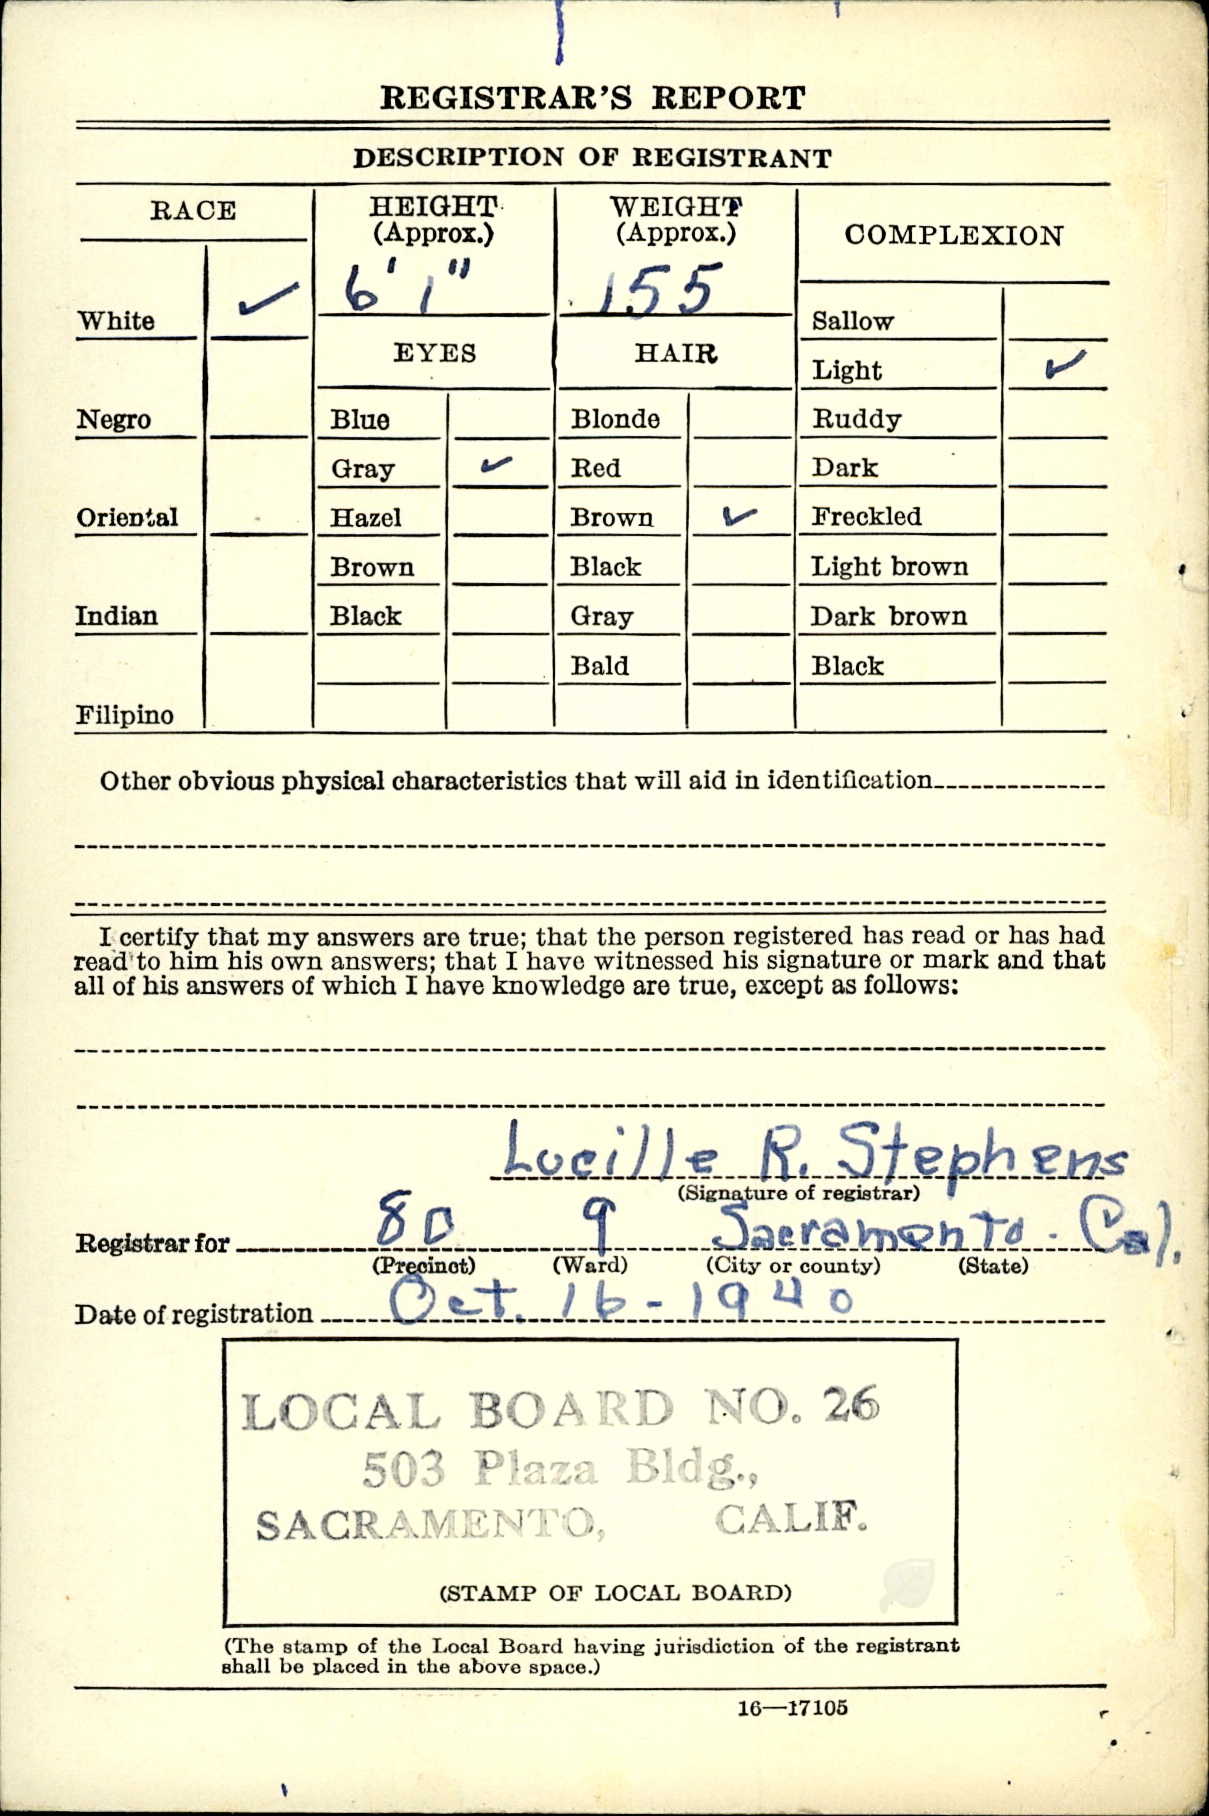 REGISTRAR'S REPORT
DESCRIPTION OF REGISTRANT
RACE
HEIGHT (Approx.)
WEIGHT (Approx.)
COMPLEXION
6' 1"
155
White ✓
EYES
HAIR
Sallow
Light ✓
Negro
Blue
Blonde
Ruddy
Gray ✓
Red
Dark
Oriental
Hazel
Brown ✓
Freckled
Brown
Black
Light brown
Indian
Black
Gray
Dark brown
Bald
Black
Filipino
Other obvious physical characteristics that will aid in identification
I certify that my answers are true; that the person registered has read or has had
read to him his own answers; that I have witnessed his signature or mark and that
all of his answers of which I have knowledge are true, except as follows:
Lucille R. Stephens
(Signature of registrar)
Registrar for 80 9 Sacramento. Cal.
(Precinct) (Ward) (City or county) (State)
Date of registration Oct. 16-1940
LOCAL BOARD NO. 26
503 Plaza Bldg.,
SACRAMENTO, CALIF.
(STAMP OF LOCAL BOARD)
(The stamp of the Local Board having jurisdiction of the registrant
shall be placed in the above space.)
16—17105